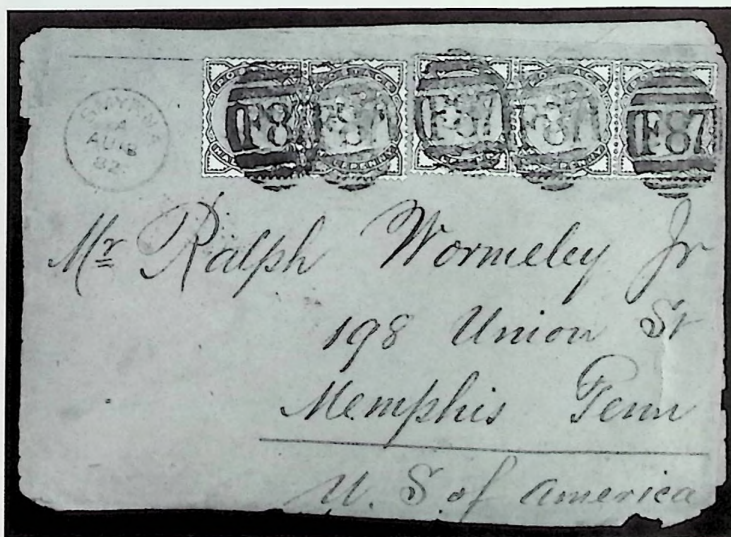 SMYRNA
A
AU 8
82
F87 F87 F87 F87 F87
Mr Ralph Wormeley Jr
198 Union St
Memphis Tenn
U. S. of America